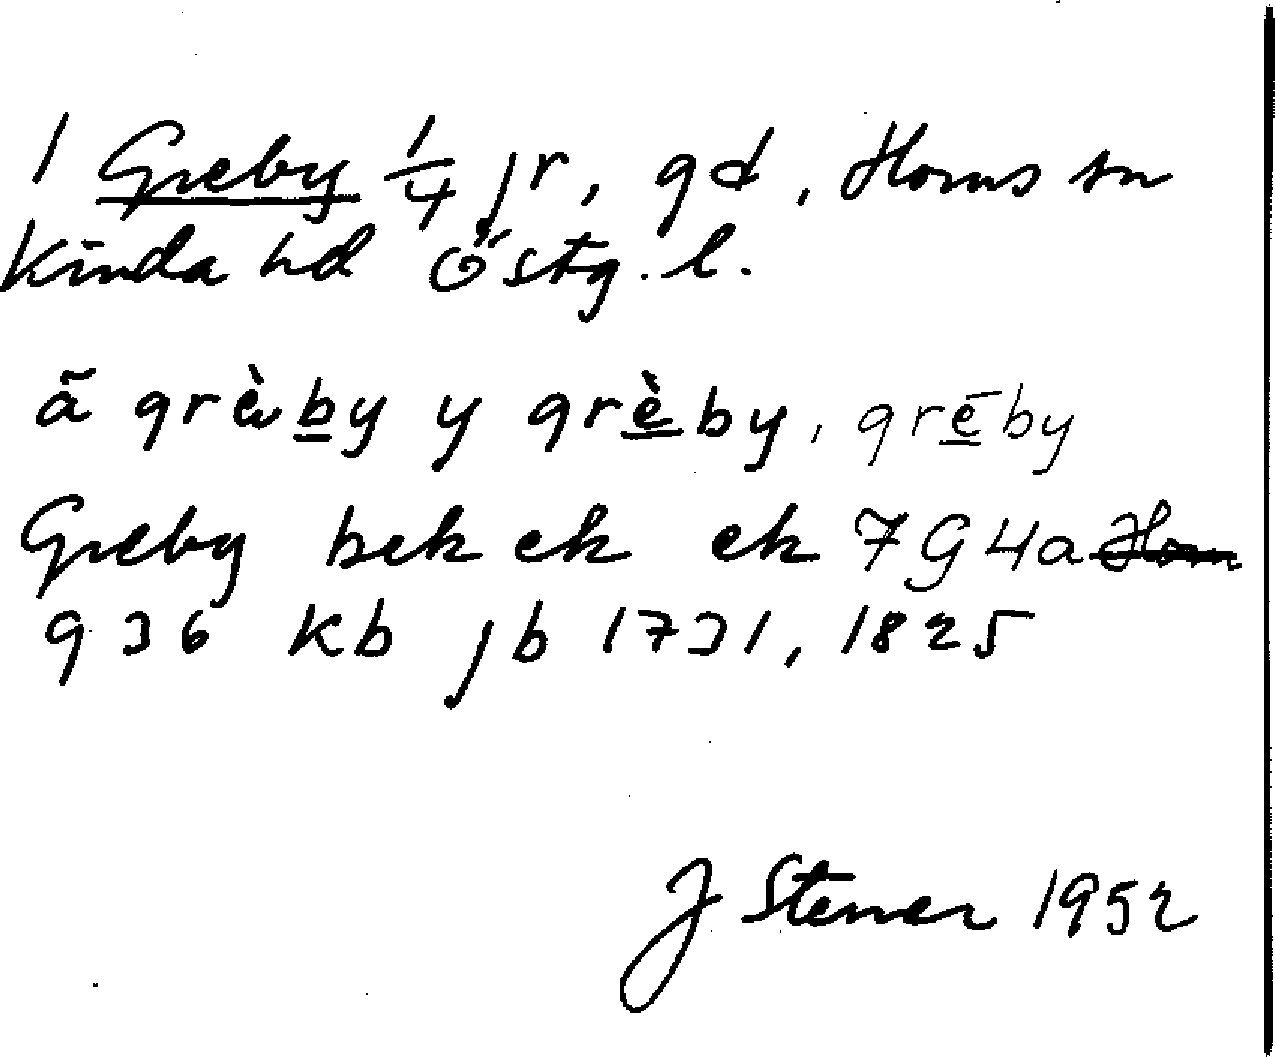 1 Greby 1/4 jr, gd, Horns sn
Kinda hd Östg. l.
ā grèby y grèby, grēby
Greby bek ek ek 7G4a Horn
936 kb jb 1731, 1825
J Stener 1952